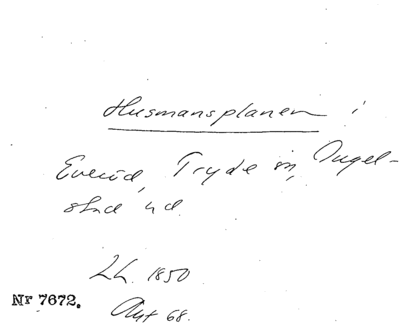 Husmansplanen i
Everöd, Tryde sn, Ingel-
stad hd.
Lh. 1850
Nr 7672.
Avt 68.